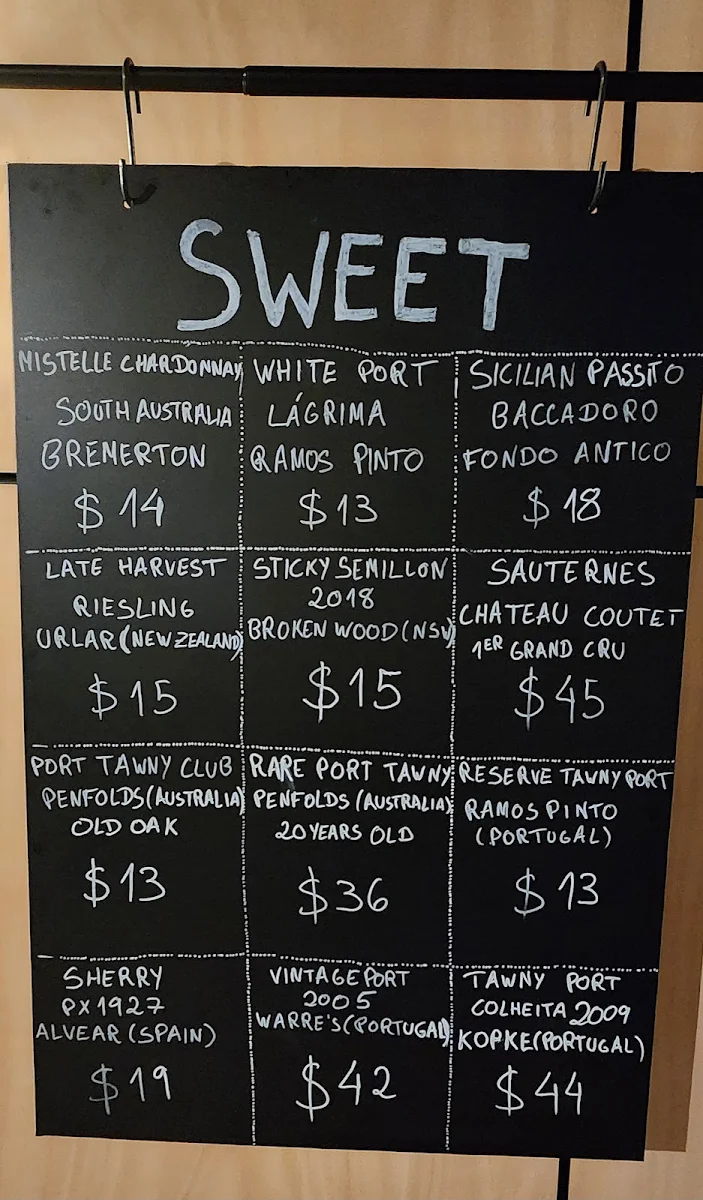 SWEET
MISTELLE CHARDONNAY
SOUTH AUSTRALIA
BREMERTON
$14
WHITE PORT
LÁGRIMA
RAMOS PINTO
$13
SICILIAN PASSITO
BACCADORO
FONDO ANTICO
$18
LATE HARVEST
RIESLING
URLAR (NEW ZEALAND)
$15
STICKY SEMILLON
2018
BROKEN WOOD (NSW)
$15
SAUTERNES
CHATEAU COUTET
1ER GRAND CRU
$45
PORT TAWNY CLUB
PENFOLDS (AUSTRALIA)
OLD OAK
$13
RARE PORT TAWNY
PENFOLDS (AUSTRALIA)
20 YEARS OLD
$36
RESERVE TAWNY PORT
RAMOS PINTO
(PORTUGAL)
$13
SHERRY
PX 1927
ALVEAR (SPAIN)
$19
VINTAGE PORT
2005
WARRE'S (PORTUGAL)
$42
TAWNY PORT
COLHEITA 2009
KOPKE (PORTUGAL)
$44